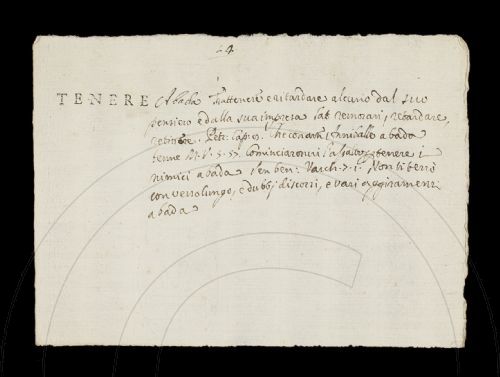 24
TENERE A bada Trattenere e ritardare alcuno dal suo
pensiero e dalla sua impresa lat. remorari, retardare,
retinere. Petr. cap. Annibale a bada
tenne M. V. 5. 57. cominciarono tenere i
nimici a bada Sen. ben: Varch. 7. 1. Non ti terrò
con verso lungo, e dubbj discorsi, e vari aggiramenti
a bada